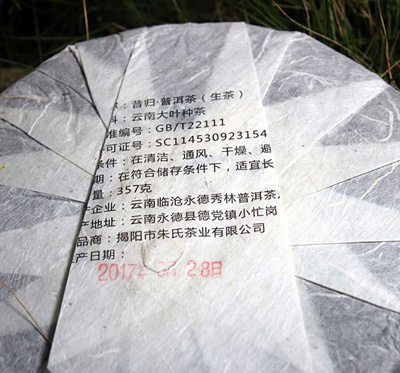 称：昔归·普洱茶（生茶）
料：云南大叶种茶
准编号：GB/T22111
可证号：SC114530923154
条件：在清洁、通风、干燥、避
期：在符合储存条件下，适宜长
量：357克
产企业：云南临沧永德秀林普洱茶,
产地址：云南永德县德党镇小忙岗
品商：揭阳市朱氏茶业有限公司
产日期：
2017 28日